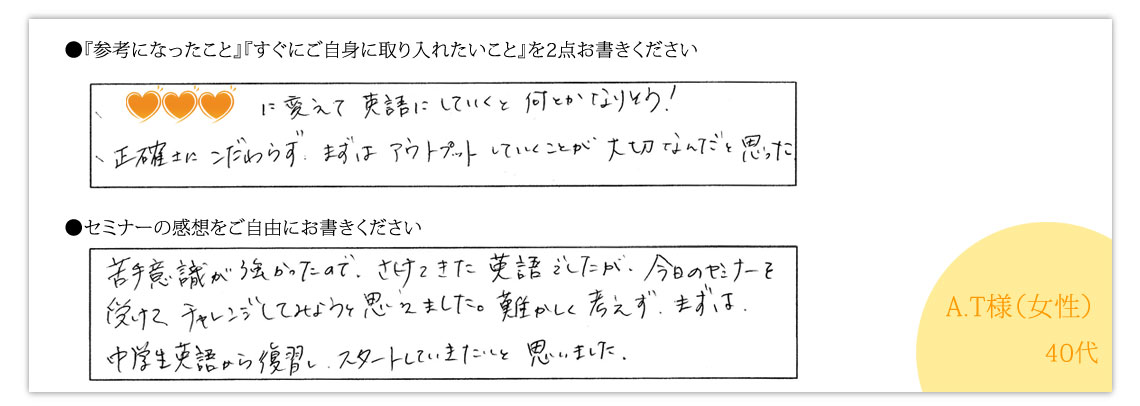 ●『参考になったこと』『すぐにご自身に取り入れたいこと』を2点お書きください
、🧡🧡🧡に変えて英語にしていくと何とかなりそう！
、正確士にこだわらず、まずはアウトプットしていくことが大切なんだと思った
●セミナーの感想をご自由にお書きください
苦手意識が強かったので、さけてきた英語でしたが、今日のセミナーを
受けて、チャレンジしてみようと思えました。難かしく考えず、まずは、
中学生英語から復習し、スタートしていきたいと思いました。
A.T様（女性）
40代